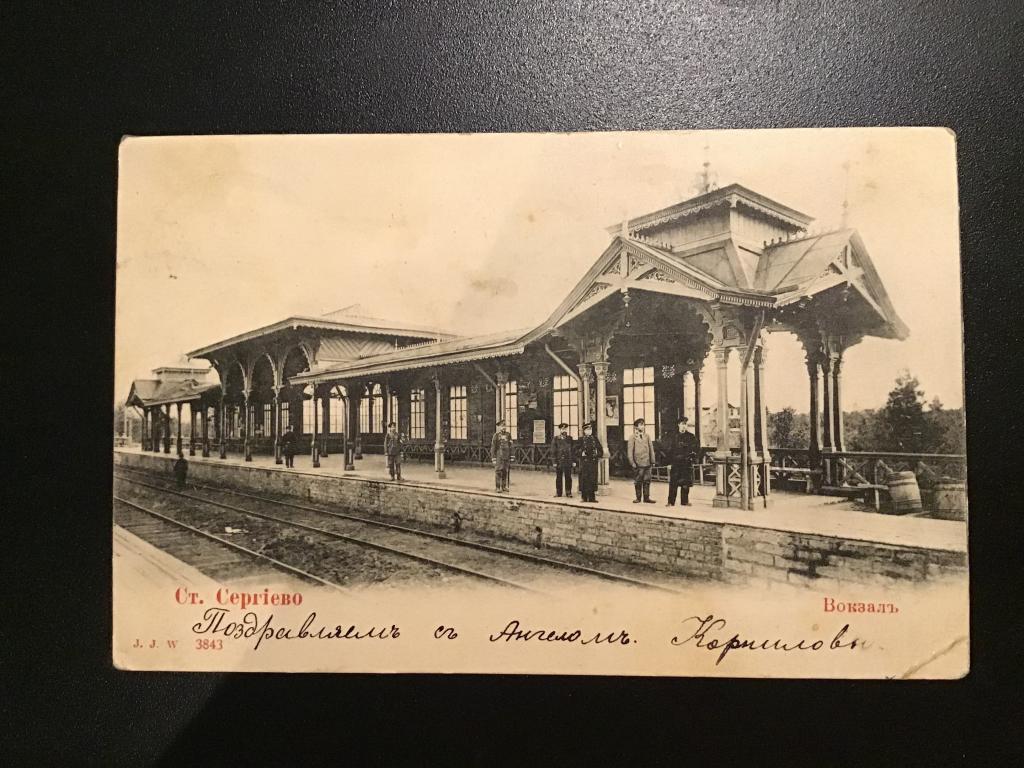 Ст. Сергіево
Вокзалъ
Поздравляемъ съ Ангеломъ. Корниловы
J. J. W 3843